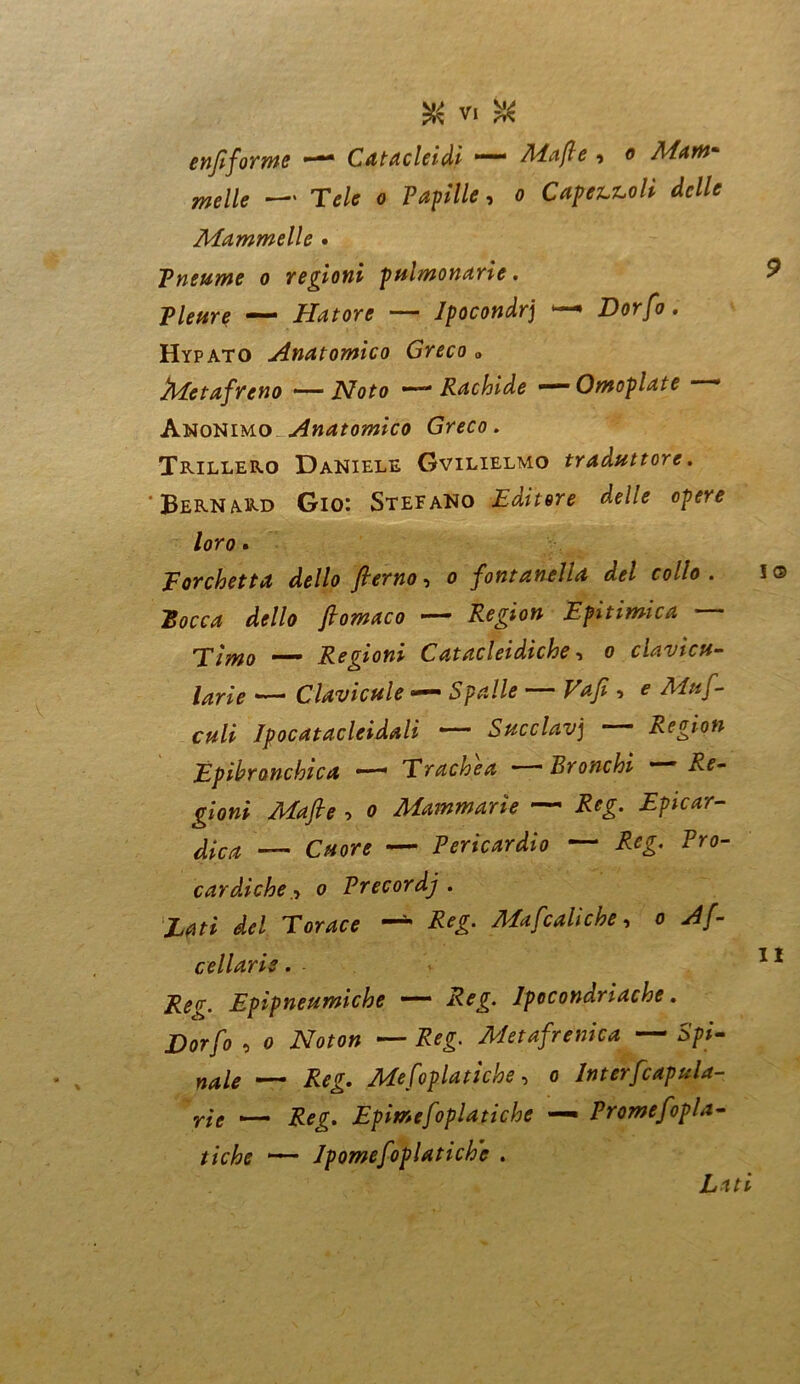 ※ VI ※
enſiforme — Catacleidi — Maſte, o Mam-
melle — Tele o Papille, o Capezzoli delle
Mammelle.
Pneume o regioni pulmonarie. 9
Pleure — Hatore — Ipocondrj — Dorſo.
HYPATO Anatomico Greco.
Metafreno — Noto — Rachide — Omoplate —
ANONIMO Anatomico Greco.
TRILLERO DANIELE GVILIELMO traduttore.
BERNARD GIO: STEFANO Editore delle opere
loro.
Forchetta dello ſterno, o fontanella del collo. 10
Bocca dello ſtomaco — Region Epitimica —
Timo — Regioni Catacleidiche, o clavicu-
larie — Clavicule — Spalle — Vaſi, e Muſ-
culi Ipocatacleidali — Succlavj — Region
Epibronchica — Trachèa — Bronchi — Re-
gioni Maſte, o Mammarie — Reg. Epicar-
dica — Cuore — Pericardio — Reg. Pro-
cardiche, o Precordj.
Lati del Torace — Reg. Maſcaliche, o Aſ-
cellarie. 11
Reg. Epipneumiche — Reg. Ipocondriache.
Dorſo, o Noton — Reg. Metafrenica — Spi-
nale — Reg. Meſoplatiche, o Interſcapula-
rie — Reg. Epimeſoplatiche — Promeſopla-
tiche — Ipomeſoplatiche.
Lati